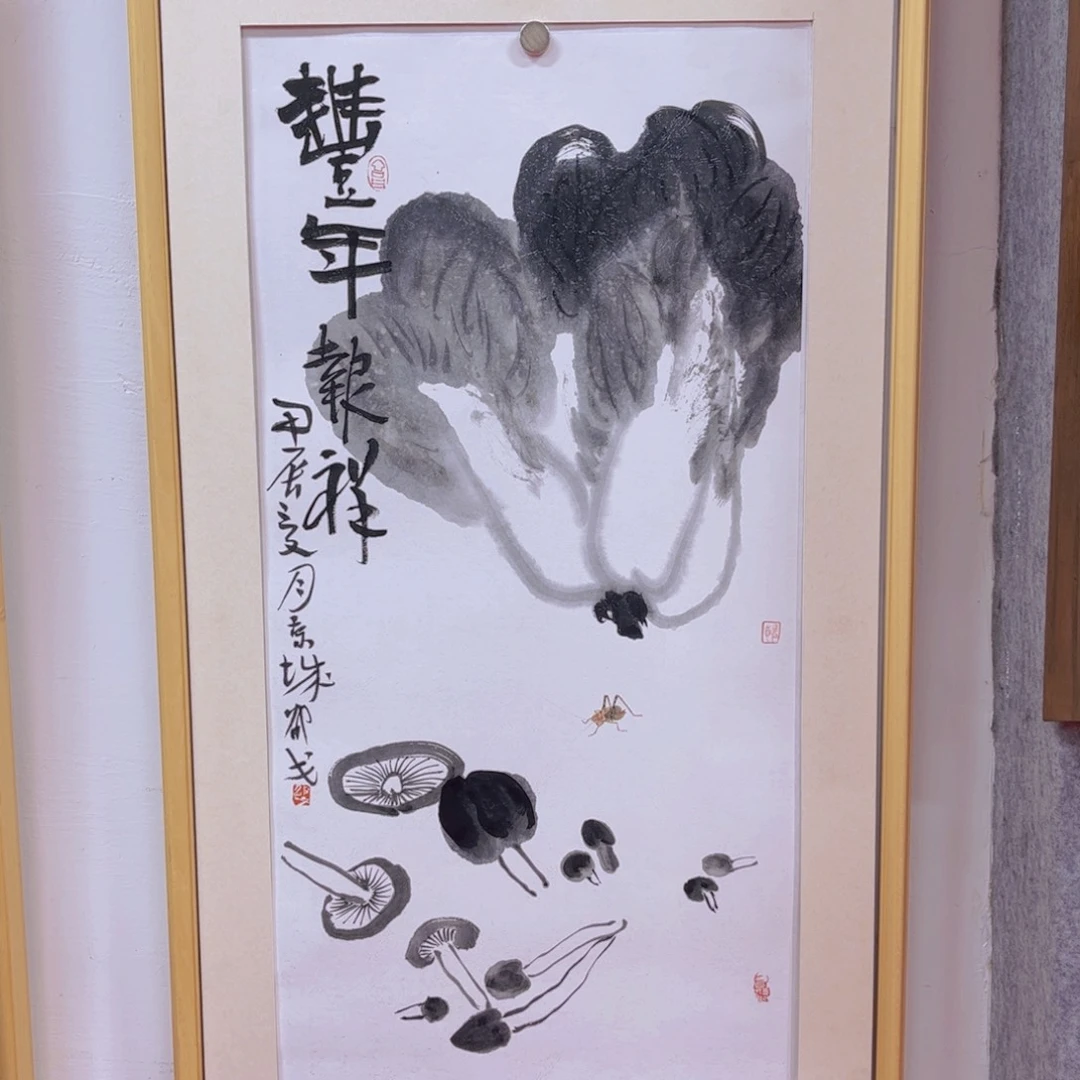 豐年報祥
甲辰夏月京城